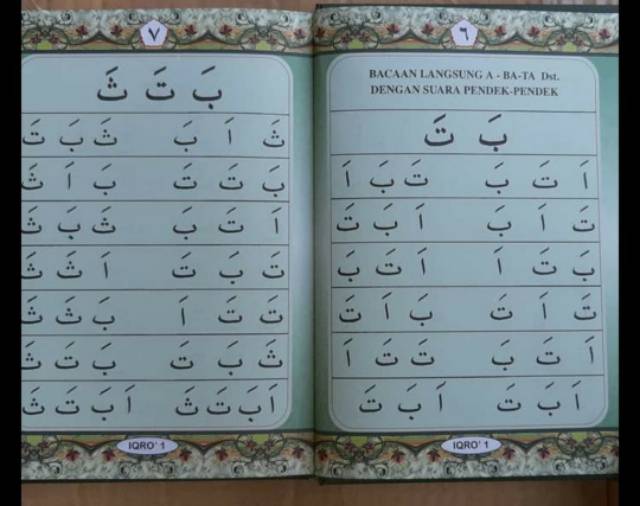 ٦
BACAAN LANGSUNG A - BA-TA Dst.
DENGAN SUARA PENDEK-PENDEK
بَ تَ
اَ تَ بَ تَ بَ اَ
تَ اَ بَ اَ بَ تَ
بَ تَ اَ اَ تَ بَ
تَ اَ تَ بَ اَ تَ
اَ تَ بَ تَ تَ اَ
اَ بَ تَ اَ بَ تَ
IQRO' 1
٧
بَ تَ ثَ
ثَ اَ بَ ثَ بَ تَ
بَ تَ تَ بَ اَ ثَ
اَ تَ بَ ثَ بَ ثَ
تَ بَ تَ اَ ثَ ثَ
تَ تَ اَ بَ ثَ ثَ
ثَ بَ تَ بَ تَ ثَ
اَ بَ تَ ثَ اَ بَ تَ ثَ
IQRO' 1